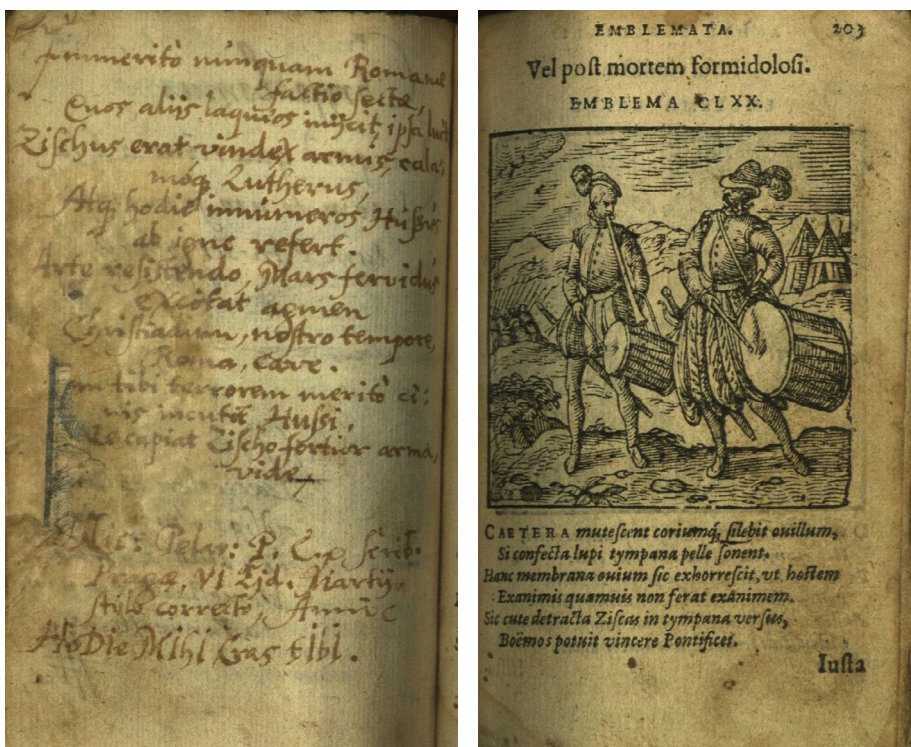 Immeritò nunquam Romanae
factio sectae,
Quos alijs laqueos injicit, ipsa luit
Zischus erat vindex armis, cala-
moq; Lutherus,
Atq; hodie innumeros Hussus
ab igne refert.
Arte resistendo, Mars fervidus
excitat agmen
Christiadum, nostro tempore,
Roma, cave.
tibi terrorem meritò ci:
nis incutit Hussi,
capiat Zischo fortior arma,
vide,
P. C. scrib.
Pragae, VI Eid. Martij,
stylo correcto, Annûe
HoDie MIhi Cras tIbI.
EMBLEMATA. 203
Vel post mortem formidolosi.
EMBLEMA CLXX.
CAETERA mutescent coriumq́; silebit ouillum,
Si confecta lupi tympana pelle sonent.
Hanc membrana ouium sic exhorrescit, vt hostem
Exanimis quamuis non ferat exanimem.
Sic cute detracta Ziscas in tympana versus,
Boëmos potuit vincere Pontifices.
Iusta